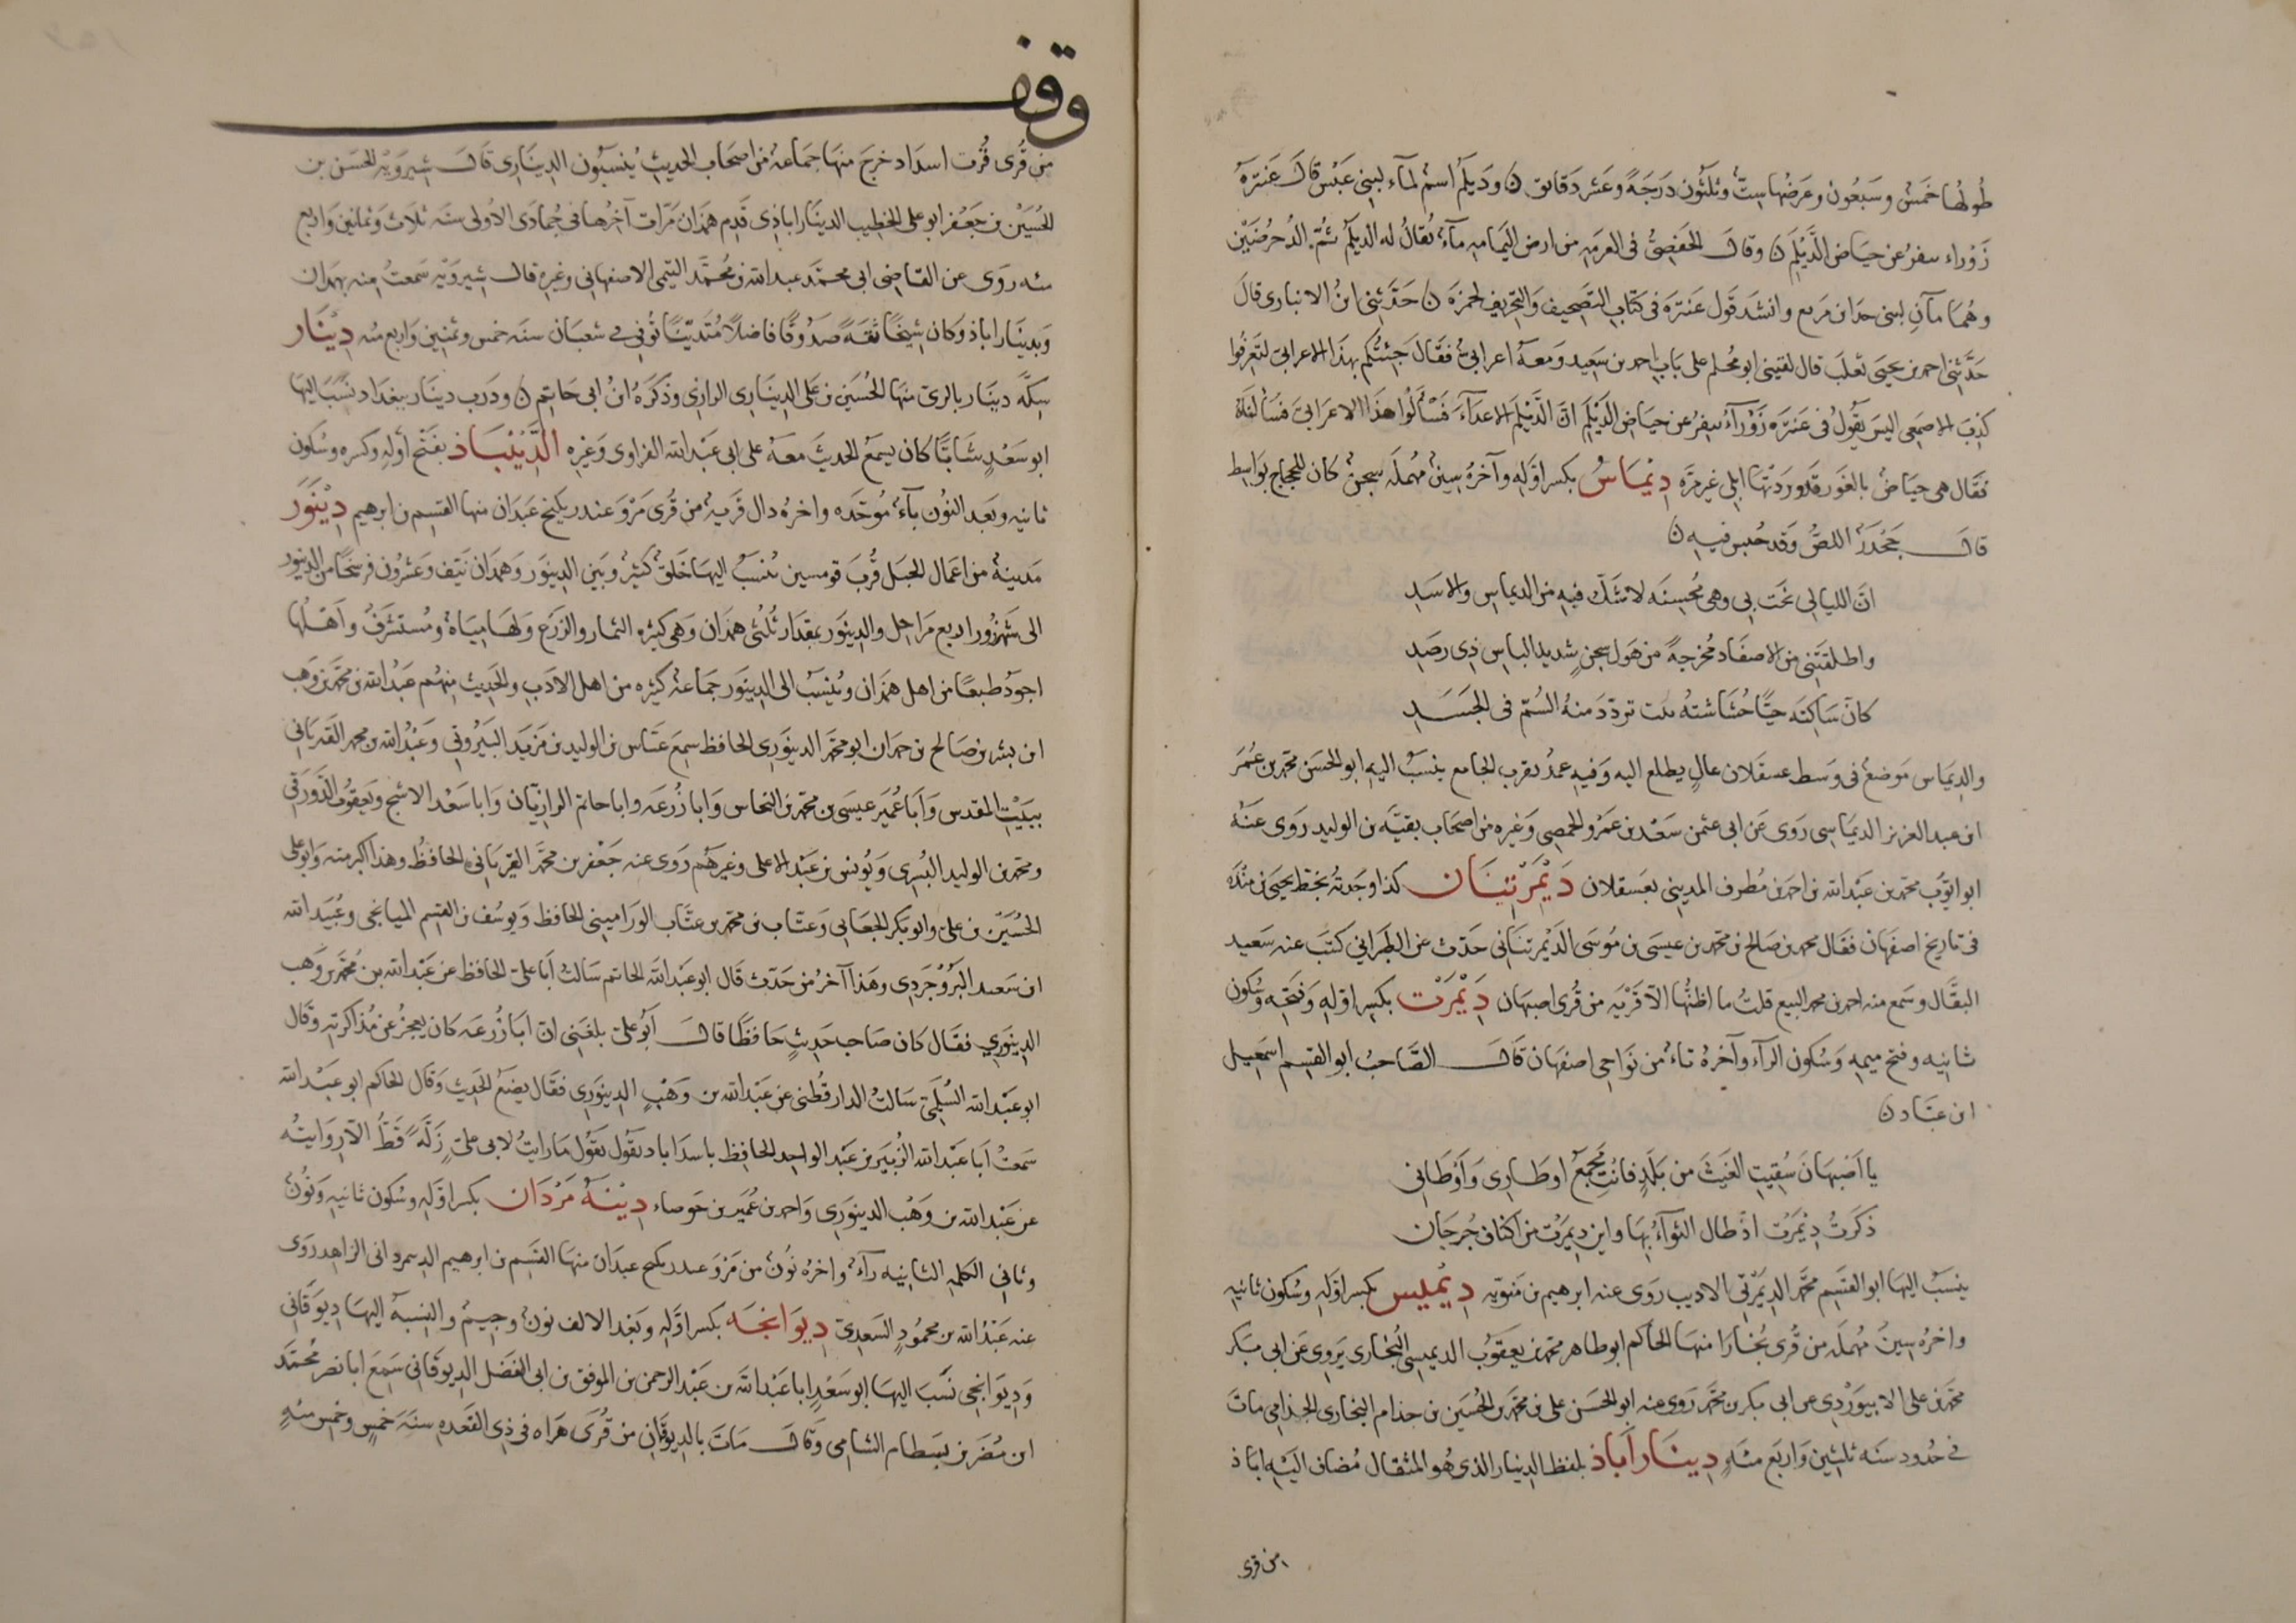 طُولُها خَمسٌ وسَبعُون وعَرضُها سِتٌ وثلثُون دَرَجَةً وعَشر دَقائق ن ودَيلَمُ اسمٌ لمآء لبَنِي عَبْس قالَ عَنترَه
زَوْراء سفرُ عن حيَاضِ الدَّيْلَمِ ن وقالَ الحَفصِىُّ فى العرَمَه من ارض اليَمامهِ مآءٌ يُقالُ له الديلَمُ ثمّ الدُحرُضَيْن
وهُمَا مآنِ لبنى حدّان مربع وانشَد قَول عَنترَة فى كتابِ التصحيف وَالتحريف لحمزَة ن حَدَّثنِى ابنُ الانبارى قالَ
حَدَّثنِى احمد بن يحيَى ثعلب قال لقينى ابو مُحلم على بَابِ احمد بن سَعِيد ومَعهُ اعرابىٌ فقَالَ جِئتُكم بهذَا الاعرابىّ لتَعرفُوا
كذِبَ الاصمَعِى اليسَ يَقُولُ فى عَنترَه زَوْرآءُ سفرُ عن حيَاضِ الدَيْلَمِ انّ الدَّيْلَمَ الاعدَآءَ فَسْألُوا هذَا الاعرَابىَّ فسَألنَاهُ
فقَال هى حِيَاضٌ بالغَور قَد وردَتها ابلِى غيرمَرَّه دِيْماسُ بكسر اوّلهِ وآخرُهُ سِينٌ مُهملَه سجنٌ كان للحجاج بوَاسِط
قالَ جَحْدَرُ اللصُّ وقد حُبس فيه ن
انَّ الليالِى نحَت بِى وهى مُحسِنَه لا شَكّ فيهِ من الديماسِ والاسَدِ
واطلقتَنِى من الاصفَاد مُخرجةً من هَول سجنٍ شديد الباسِ ذِى رصَدِ
كانّ سَاكِنَه حيًّا حُشَاشتهُ ميت تردّدَ منهُ السُمّ فى الجَسَدِ
والديمَاس مَوضعٌ فى وَسط عسقلان عالٍ يطلع اليه وفيهِ عمدٌ بقرب الجامع ينسَبُ اليهِ ابو الحسَن محمد بن عُمَرَ
ابن عبد العزيز الديمَاسِى رَوى عَن ابى عثمن سَعْد بن عَمرو الحمصِى وَغيره من اصحَاب بقيَّه بن الوليد رَوى عَنهُ
ابو ايّوبَ محمّد بن عَبْد الله بن احمد بن مُطرف المدينِى بعَسقلان دَيْمَرْتِيَان كذا وجَدتهُ بخَط يحيَى بن مندَه
فى تاريخ اصفَهان فقَال محمد بن صَالح بن محمد بن عيسَى بن مُوسَى الدَيْمرتيَانى حَدّث عن الطَبرانِى كتَبَ عنه سَعيد
البقَّال وسَمع منه احمد بن محمد البيع قلتُ ما اظنُّها الاّ قَرْيَه من قُرى اصبهَان دِيْمَرْت بكسر اوّلهِ وفتحه وسُكون
ثانِيه وفتح ميمِه وَسُكون الرآء وآخرهُ تاءٌ من نَواحِى اصفهَان قالَ الصَّاحِبُ ابو القسِم اسمَعِيل
ابن عبَّاد ن
يا اَصبهَانَ سُقِيتِ الغَيثَ من بَلَدٍ فانْتِ مَجْمَعُ اوطَارى وَاَوْطَانِى
ذكَرتُ دِيْمَرت اذْ طال الثوآءُ بهَا واين دِيمَرْت من اكناف جُرجَان
ينسَبُ اليهَا ابو القسَم محمَّد الدِيمَرْتى الاديب رَوى عنه ابرهيم بن مَتّويَه دِيْمِيس بكسر اوّلهِ وسُكون ثانيهِ
واخرُه سِينٌ مُهملَه من قُرى بُخَارَا منهَا الحاكم ابو طاهر محمد بن يعَقوُبَ الديمِسِى البُخَارى يَروِى عَن ابى بَكر
محمّد بن على الابيوَرْدِى عن ابى بكر بن محمَّد رَوى عنه ابو الحَسَن على بن محمّد بن الحُسَين بن جذام البخارى الجذامى ماتَ
فى حُدود سنَه ثلثين وَاربَع مئهِ دِينَارآباذ بلفظ الدِينار الذى هُو المثقال مُضاف اليه اباذ
من قرى
وقف
من قُرى قُرب اسدَاد خرجَ منهَا جَماعَهُ من اصحَاب الحديثِ يُنسَبُون الدِينَارِى قالَ شِيروَيْه الحَسَن بن
الحُسَيْن بن جَعْفر ابو على الخطيب الدينَاراباذِى قَدِم همَذان مَرّات آخرُها فى جُمادَى الاُولى سنَه ثلاث وَثمنين وَاربع
مئه رَوَى عن القاضِى ابى محمّد عبد الله بن مُحمَّد التيمِى الاصفهانِى وغيرِه قالَ شِيرويْه سَمعتُ منه بهَمذان
وَبدينَاراباذ وَكان شيخًا ثقةً صَدُوقًا فاضلاً مُتَديّنًا تُوفى فى شعبَان سنَه خمس وثمنين وَاربع مئه دِيْنَار
سِكةُ دِينَار بالرىّ منهَا الحُسَين بن عَلى الدِينَارِى الرازى وذَكَرهُ ابنُ ابى حَاتِم ن وَدَرب دِينَار ببغداد نُسَبَ اليهَا
ابو سَعْدٍ شابًّا كان يسمعُ الحديثَ معَهُ على ابى عَبْد الله الفراوِى وَغيره الدَّيْنَباذ بفتْح أوّلهِ وكسره وسُكون
ثانيه وبَعد النُون بآءٌ مُوحّدَه واخرهُ دال قَريةٌ من قُرى مَرْوَ عند ريكنج عبدَان منها القسِم بن ابرهيم دِيْنَوَر
مَدينةٌ من اعمَال الجبَل قُربَ قرمسين يُنسَبُ اليهَا خَلقٌ كثيرٌ وبَين الدِينوَر وهَمذان نيّف وعشرُون فرسَخًا من الدينور
الى شهرزُور اربع مَراحِل والدينوَر بمقدَار ثلثى همَذان وَهى كثيره الثمَار والزَرع وَلهَا مِيَاهٌ ومُستشرَفُ واَهلُها
اجودُ طبعًا من اهل همَذان ويُنسَبُ الى الدينوَر جمَاعَهٌ كثيره من اهل الادَبِ والحَدِيث منهُم عَبْدُ الله بن محمّد بن وَهب
ابن بشر بن صَالح بن حمدان ابو محمّد الدينوَرِى الحافظ سمعَ عبّاس بن الوليد بن مَزيَد البَيْرُوتى وعَبْدُ الله بن محمد الفَريَابى
ببَيْتِ المقدس وَاَبا عُمَير عيسَى بن محمّد بن النحاس وَابا زُرعَه وابا حاتم الرازيَّان وَابا سَعْد الاشج ويَعقُوب الدَّوْرَقى
ومحمّد بن الوليد البُسرِى وَيُونس بن عَبْد الاعلى وغيرهُم رَوى عنه جَعْفر بن محمَّد الفريَابى الحافظُ وهذا اكبر منه وَابو على
الحُسَيْن بن على وابو بَكر الجعَابى وَعتّاب بن محمّد بن عتّاب الورَامينِى الحافظ وَيُوسُف بن القسِم الميانجى وعُبَيد الله
ابن سَعيد البَرُوْجَردِى وهذا آخرُ من حَدّث قَال ابو عَبْد الله الحاتم سَالتُ اَبا علىّ الحافظ عن عَبْد الله بن مُحمَّد بن وَهب
الدِينوَرى فقَال كان صَاحِبَ حَدِيثٍ حَافظًا قالَ اَبُو علىّ بلغَنِى انّ اَبا زُرعَه كان يعجزُ عن مُذاكرتهِ وَقال
ابو عَبْد الله السُلَمِىّ سَالتُ الدارقُطنى عن عَبْد الله بن وَهْبٍ الدينوَرِى فقَال يضعُ الحَديث وَقال الحاكم ابو عبْد الله
سَمعتُ اَبا عَبْد الله الزُبَير بن عَبْد الواحد الحافِظ باسدَاباد يَقُول يَقُول مَا رايتُ لابى علىّ زَلَّةً قَطُّ الاّ روَايتُه
عن عَبْد الله بن وَهْب الدينوَرِى وَاحمد بن عُمَير بن حَوصاء دِيْنَهُ مَرْدَان بكسر اوّلهِ وسُكون ثانيهِ وَنونٌ
وثانِى الكلمهِ الثانِيه رآءٌ واخرهُ نُونٌ من مَروَ عبدَان منهَا القسَم بن ابرهيم الزاهِد رَوى
عنه عَبْدُ الله بن محمُودٍ السَعدِىّ دِيْوَانجَه بكسر اوّلهِ وبَعْد الالف نونٌ وجيمٌ والنِسبهُ اليهَا دِيوَقَانِى
وَدِيوَانجِى نسَبَ اليهَا ابو سَعْدٍ ابا عَبْد الله بن عَبْد الرحمن بن الموفق بن ابى الفضل الدِيوقَانى سَمعَ ابا نصر محمّد
ابن مُضَر بن بسطام الشامِى وَقالَ مَاتَ بالدِيوقَان من قُرَى هَراه فى ذى القعده سنَهَ خمسٍ وخمس مئهٍ